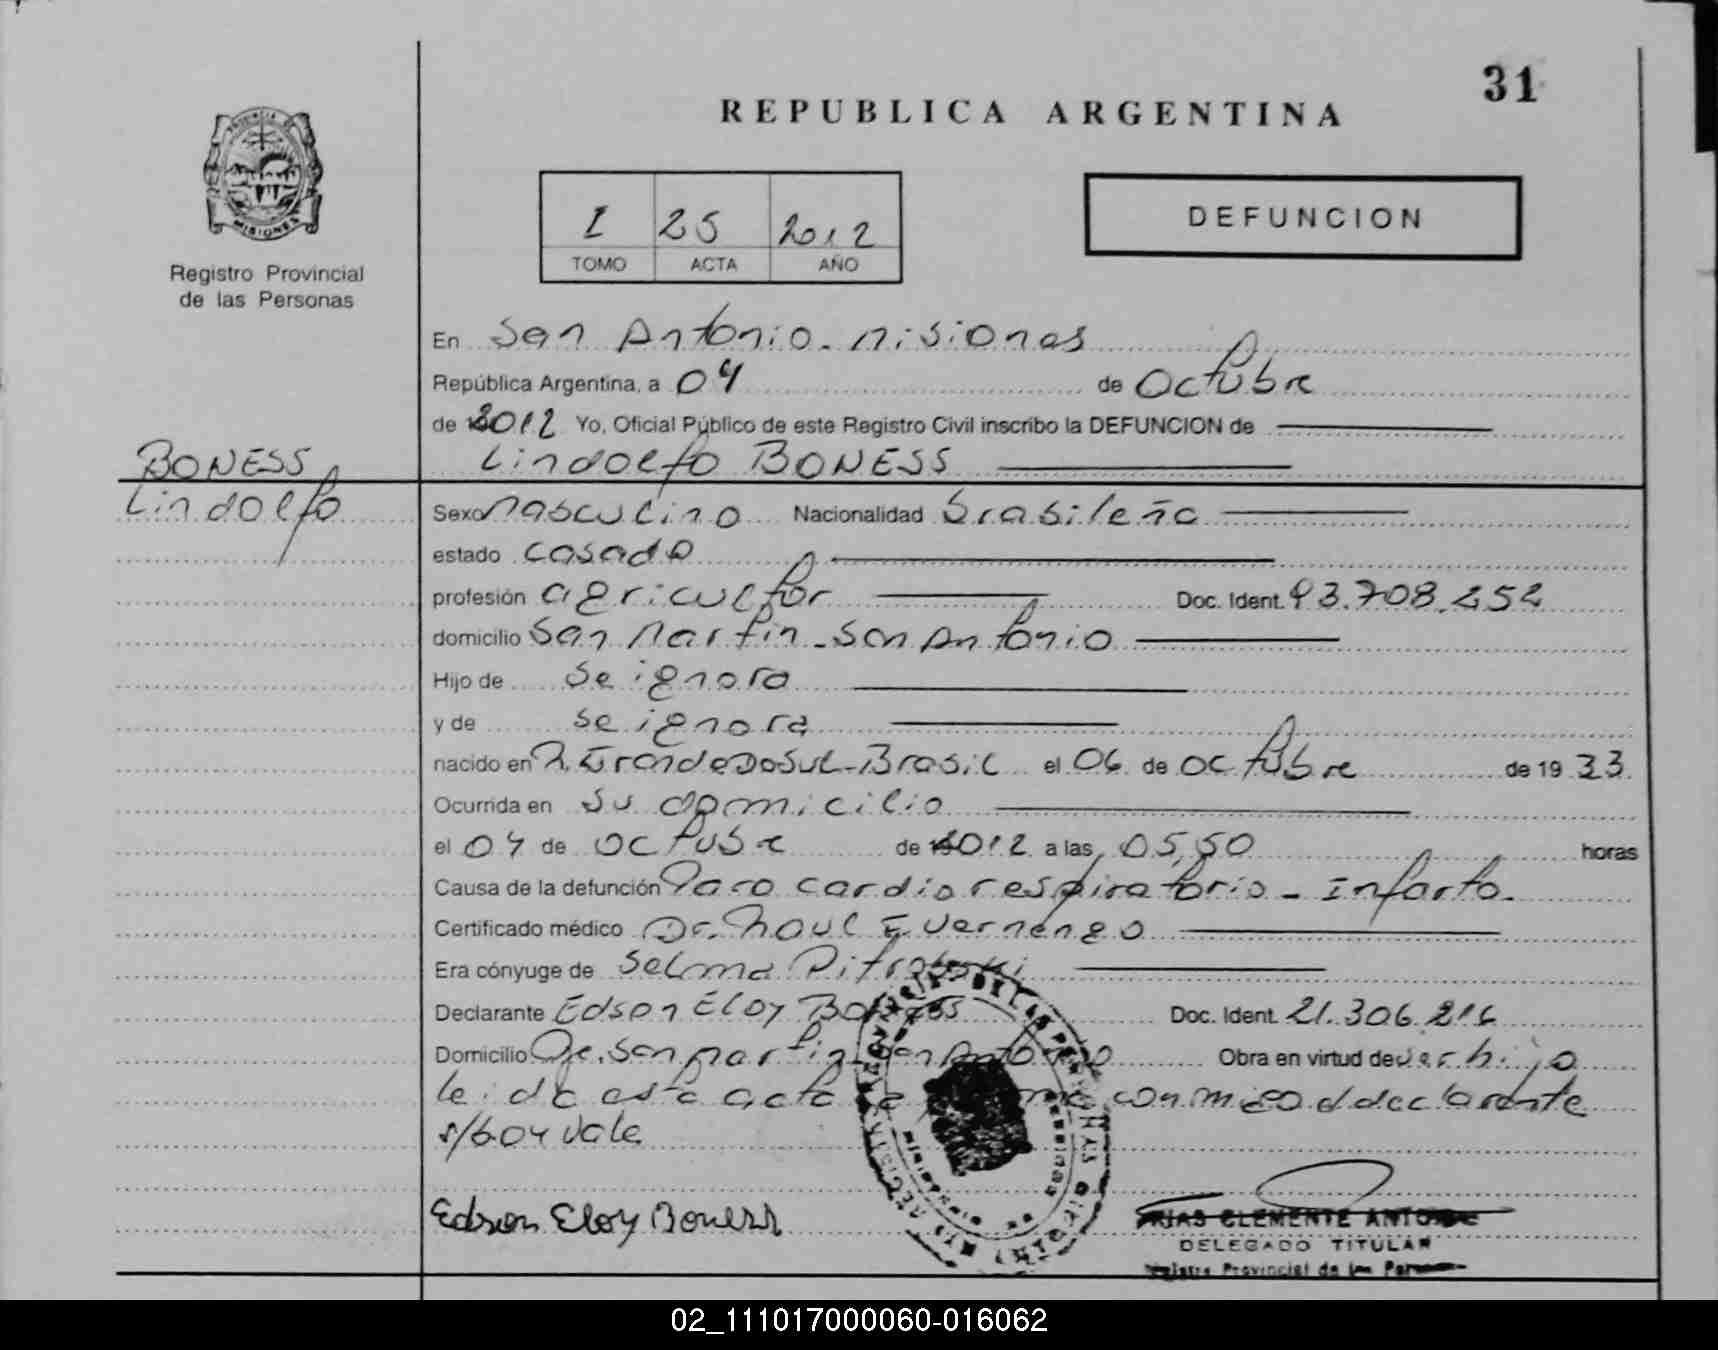 31
REPUBLICA ARGENTINA
PROVINCIA DE
MISIONES
Registro Provincial
de las Personas
I 25 2012
TOMO ACTA AÑO
DEFUNCION
En San Antonio - Misiones
República Argentina, a 04 de Octubre
de 2012 Yo, Oficial Público de este Registro Civil inscribo la DEFUNCION de
BONESS
Lindolfo BONESS
Lindolfo
Sexo Masculino Nacionalidad Brasileña
estado Casado
profesión agricultor Doc. Ident. 93.708.252
domicilio San Martin - San Antonio
Hijo de Se ignora
y de Se ignora
nacido en R. Grande Do Sul - Brasil el 06 de octubre de 19 33
Ocurrida en Su domicilio
el 04 de octubre de 2012 a las 05,50 horas
Causa de la defunción Paro cardiorespiratorio - Infarto.
Certificado médico Dr. Raul E Vernengo
Era cónyuge de Selma
Declarante Edson Eloy Boness Doc. Ident. 21.306.216
Domicilio San Martin - San Antonio Obra en virtud de Ser hijo
leida esta acta la conmigo el declarante
s/b 04 vale
Edson Eloy Boness
ARIAS CLEMENTE ANTONIO
DELEGADO TITULAR
Registro Provincial de las Personas
02_111017000060-016062